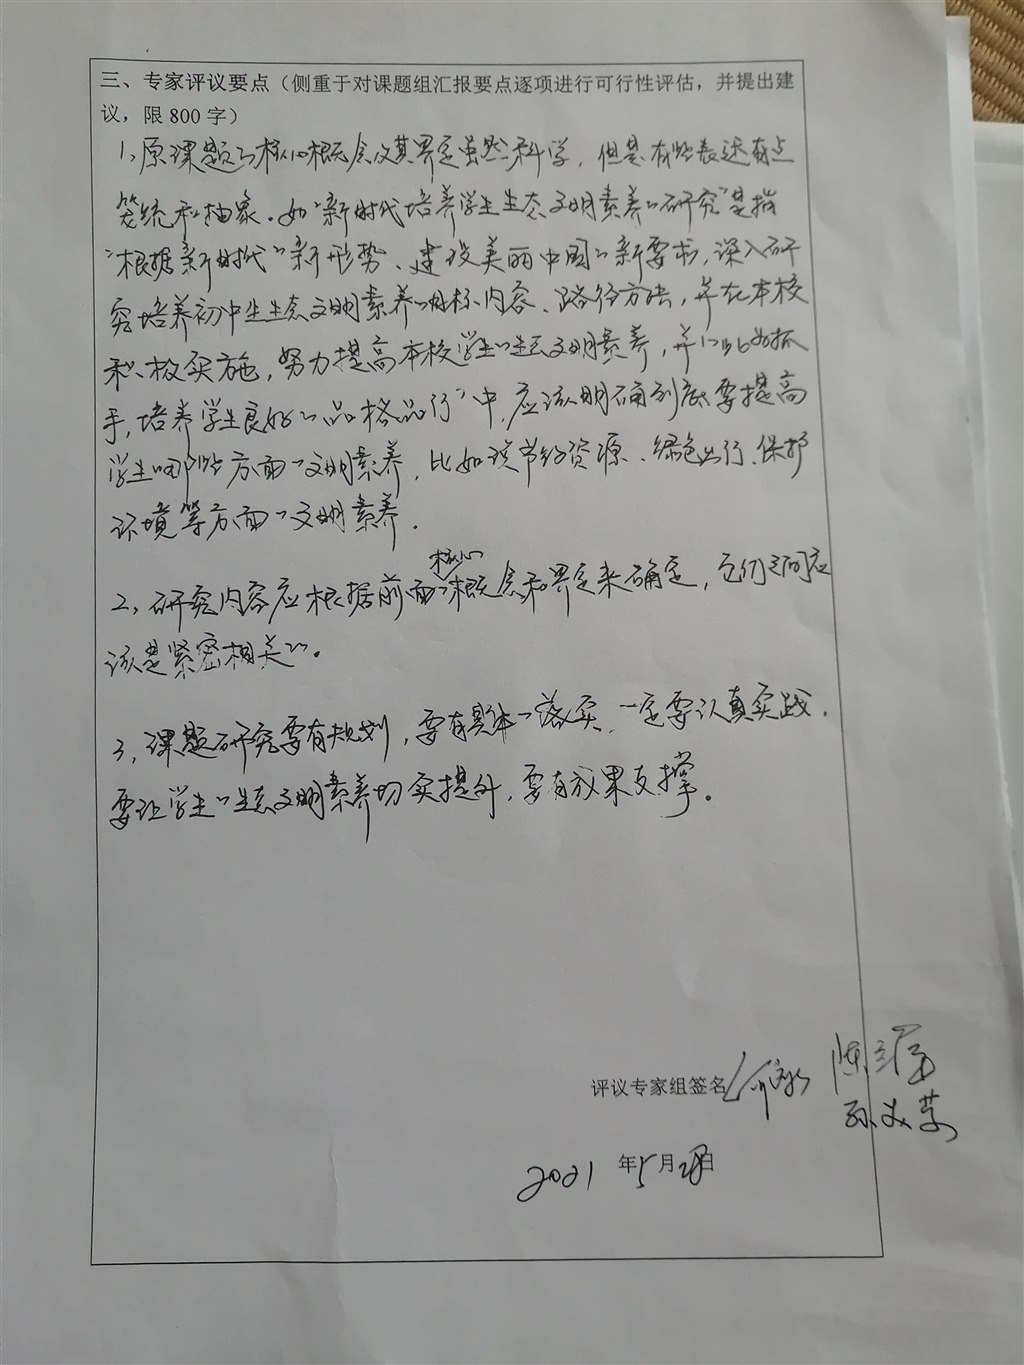 三、专家评议要点（侧重于对课题组汇报要点逐项进行可行性评估，并提出建
议，限 800 字）
1、原课题的核心概念及其界定虽然科学，但是有些表达有点
笼统和抽象。如“新时代培养学生生态文明素养的研究”是指
“根据新时代的新形势、建设美丽中国的新要求，深入研
究培养初中生生态文明素养的目标、内容、路径方法，并在本校
积极实施，努力提高本校学生的生态文明素养，并以此为抓
手，培养学生良好的品格品行”中，应该明确到底要提高
学生哪些方面的文明素养，比如说节约资源、绿色出行、保护
环境等方面的文明素养。
2、研究内容应根据前面的核心概念和界定来确定，它们之间应
该是紧密相关的。
3、课题研究要有规划，要有具体的落实，一定要认真实践，
要让学生的生态文明素养切实提升，要有成果支撑。
评议专家组签名
2021 年5月28日